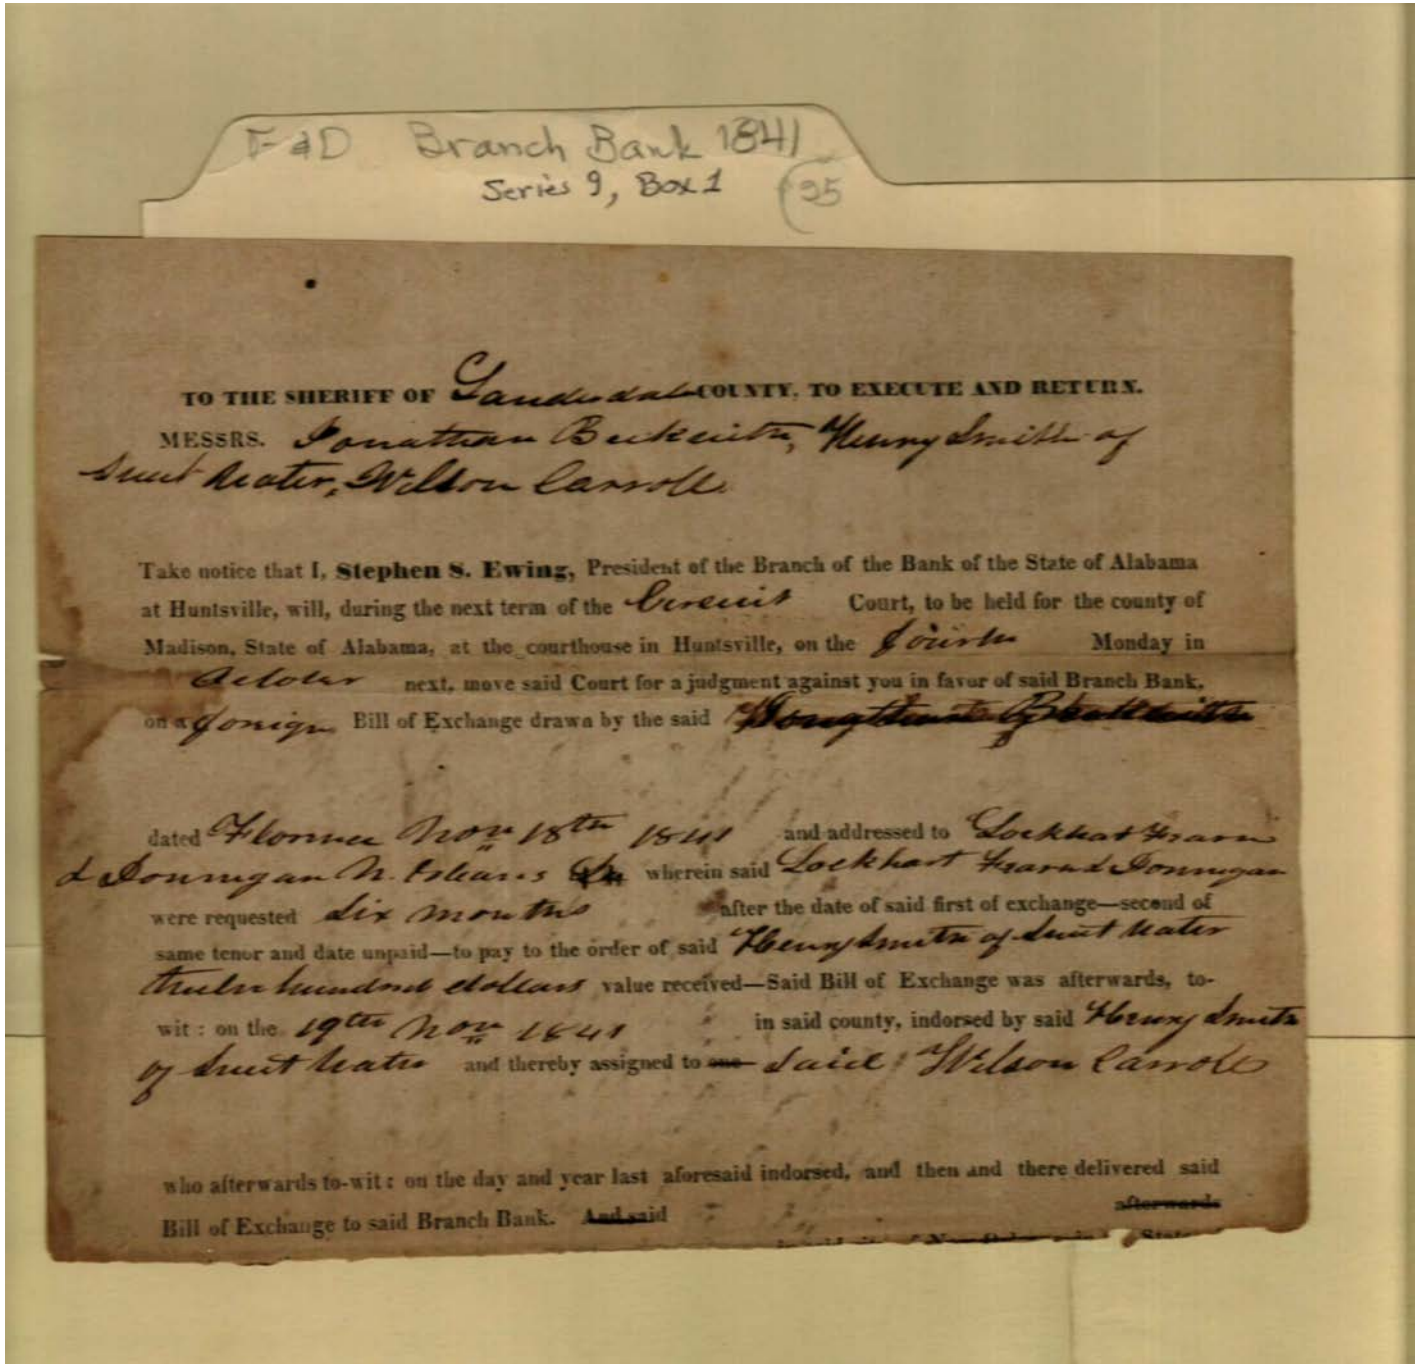 F & D Branch Bank 1841
Series 9, Box 1 (95
TO THE SHERIFF OF Lauderdale COUNTY, TO EXECUTE AND RETURN.
MESSRS. Jonathan Beckwith, Henry Smith of
Sweet Water, Wilson Carroll
Take notice that I, Stephen S. Ewing, President of the Branch of the Bank of the State of Alabama
at Huntsville, will, during the next term of the Circuit Court, to be held for the county of
Madison, State of Alabama, at the courthouse in Huntsville, on the fourth Monday in
October next, move said Court for a judgment against you in favor of said Branch Bank,
on a foreign Bill of Exchange drawn by the said
dated Florence Nov 18th 1841 and addressed to Lockhart Fearn
& Donnegan N. Orleans wherein said Lockhart Fearn & Donnegan
were requested Six months after the date of said first of exchange—second of
same tenor and date unpaid—to pay to the order of said Henry Smith of Sweet Water
twelve hundred dollars value received—Said Bill of Exchange was afterwards, to-
wit: on the 19th Nov 1841 in said county, indorsed by said Henry Smith
of Sweet Water and thereby assigned to one said Wilson Carroll
who afterwards to-wit: on the day and year last aforesaid indorsed, and then and there delivered said
afterwards
Bill of Exchange to said Branch Bank. And said